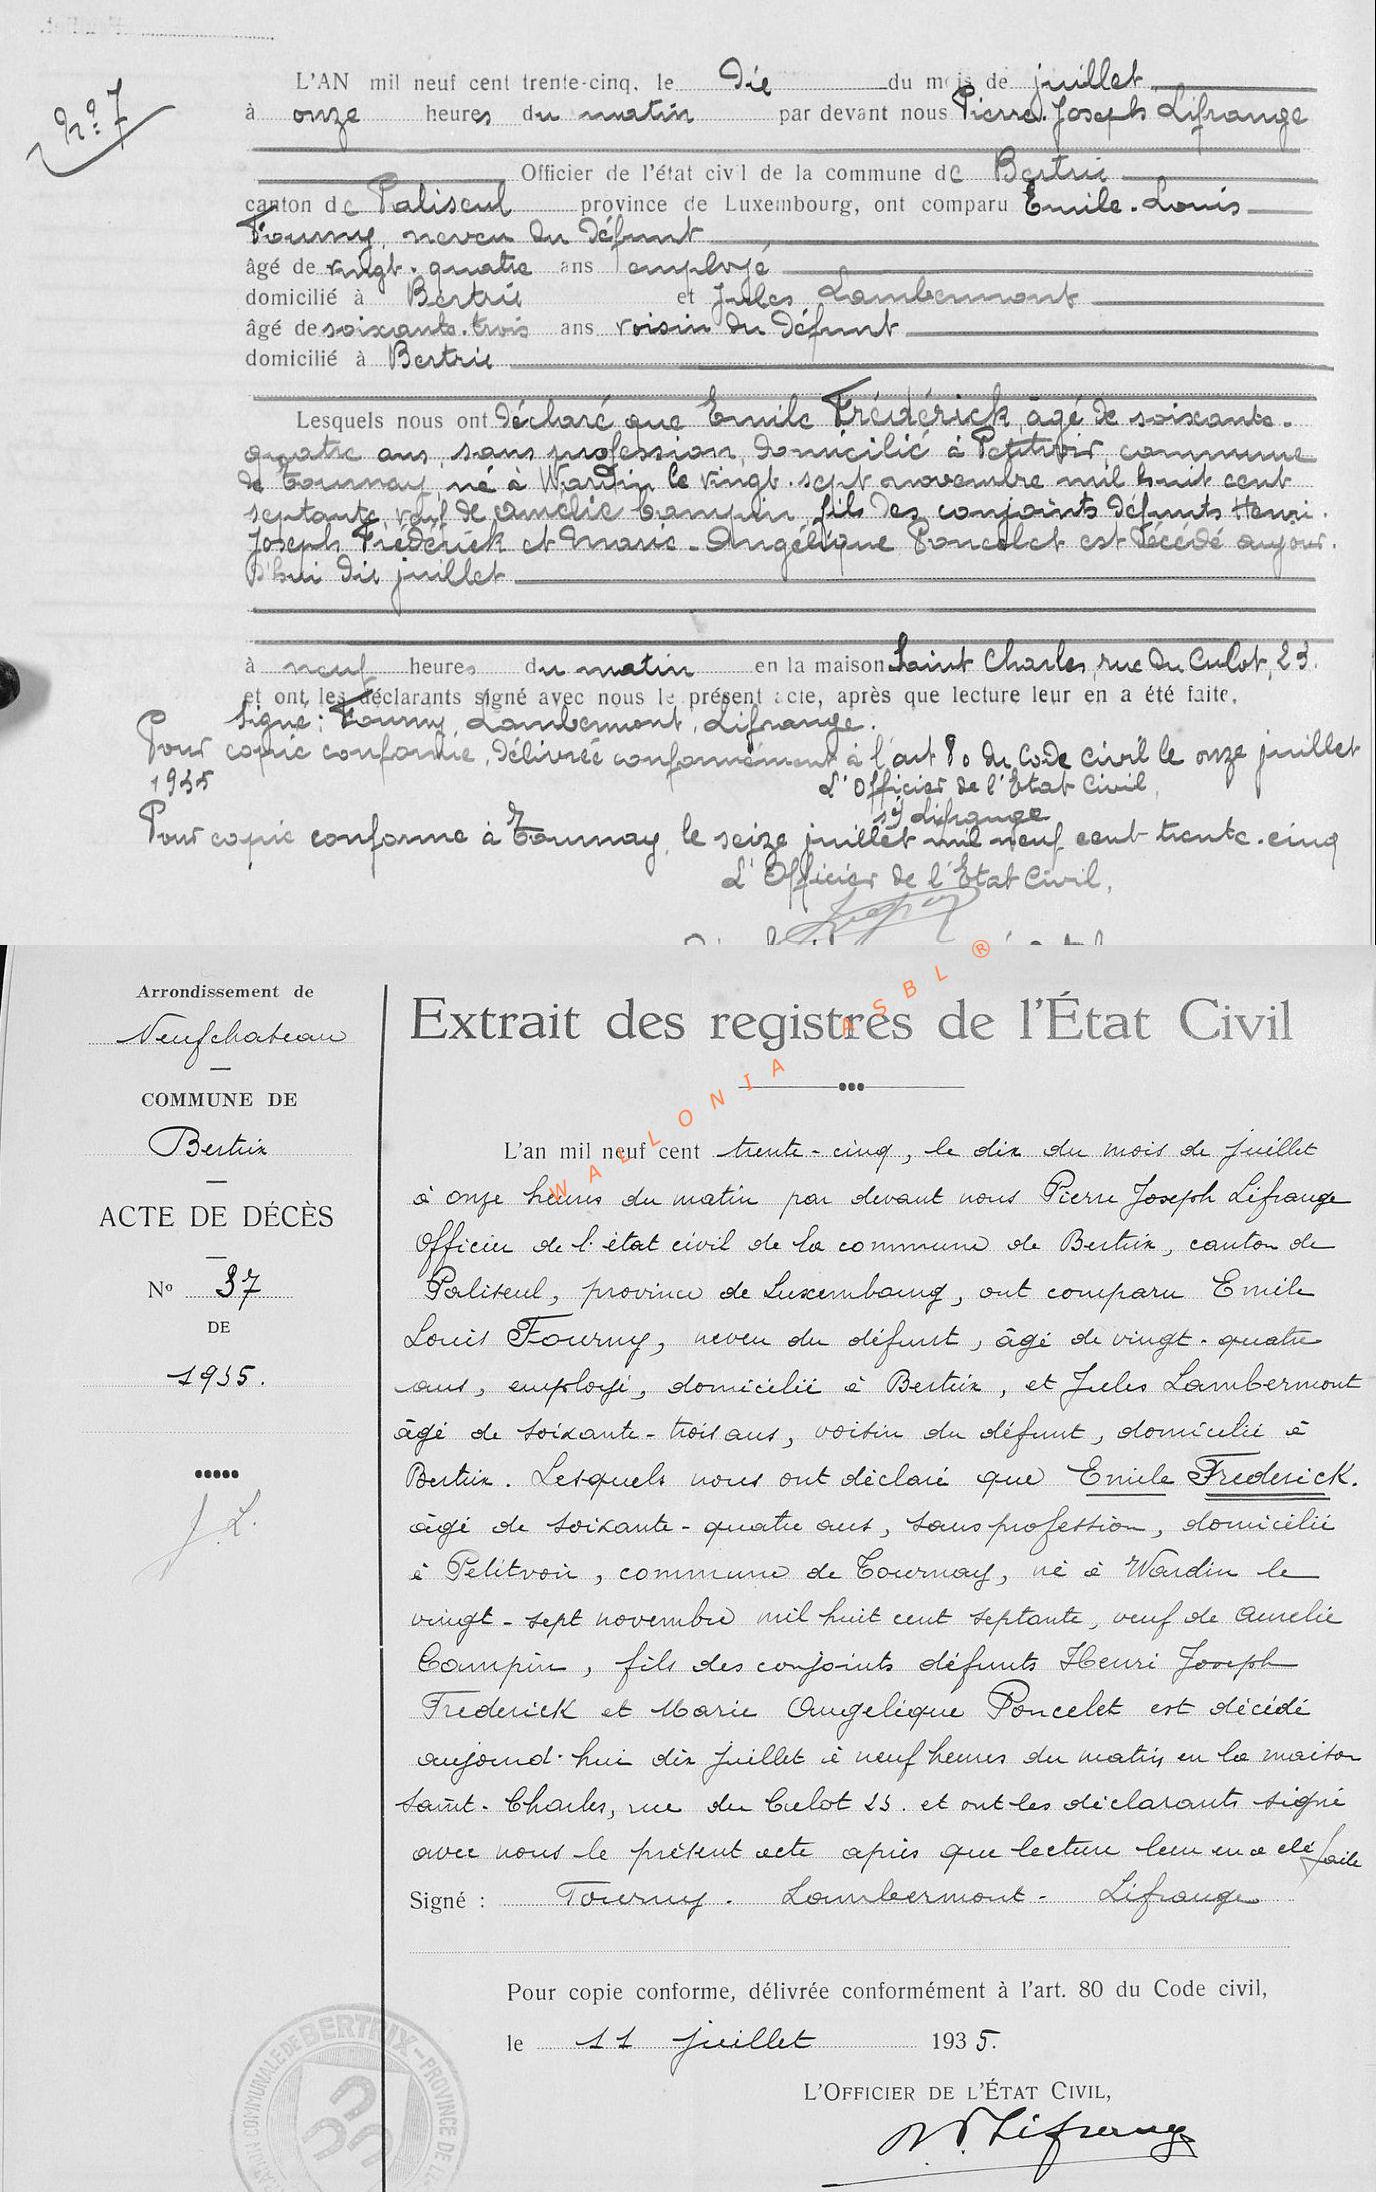 n° 7
L'AN mil neuf cent trente-cinq, le dix du mois de juillet
à onze heures du matin par devant nous Pierre-Joseph Lifrange
Officier de l'état civil de la commune de Bertrix
canton de Paliseul province de Luxembourg, ont comparu Emile-Louis
Fourny, neveu du défunt
âgé de vingt-quatre ans employé
domicilié à Bertrix et Jules Lambermont
âgé de soixante-trois ans voisin du défunt
domicilié à Bertrix
Lesquels nous ont déclaré que Emile Frédérick, âgé de soixante-
quatre ans, sans profession, domicilié à Petitvoir, commune
de Tournay, né à Wardin le vingt-sept novembre mil huit cent
septante, veuf de Amélie Campin, fils des conjoints défunts Henri-
Joseph Frédérick et Marie-Angélique Poncelet est décédé aujour-
d'hui dix juillet
à neuf heures du matin en la maison Saint Charles, rue du Culot, 23.
et ont, les déclarants signé avec nous le présent acte, après que lecture leur en a été faite.
Signé : Fourny, Lambermont, Lifrange.
Pour copie conforme, délivrée conformément à l'art 80 du Code civil le onze juillet
1935
L'Officier de l'Etat Civil,
s) Lifrange
Pour copie conforme à Tournay, le seize juillet mil neuf cent trente-cinq
L'Officier de l'Etat Civil,
WALLONIA ASBL ®
Arrondissement de
Neufchateau
COMMUNE DE
Bertrix
ACTE DE DÉCÈS
N° 37
DE
1935.
J. L.
Extrait des registres de l'État Civil
L'an mil neuf cent trente-cinq, le dix du mois de juillet
à onze heures du matin par devant nous Pierre Joseph Lifrange
Officier de l'état civil de la commune de Bertrix, canton de
Paliseul, province de Luxembourg, ont comparu Emile
Louis Fourny, neveu du défunt, âgé de vingt-quatre
ans, employé, domicilié à Bertrix, et Jules Lambermont
âgé de soixante-trois ans, voisin du défunt, domicilié à
Bertrix. Lesquels nous ont déclaré que Emile Frederick.
âgé de soixante-quatre ans, sans profession, domicilié
à Petitvoir, commune de Tournay, né à Wardin le
vingt-sept novembre mil huit cent septante, veuf de Aurelie
Campin, fils des conjoints défunts Henri Joseph
Frederick et Marie Angelique Poncelet est décédé
aujourd'hui dix juillet à neuf heures du matin en la maison
Saint-Charles, rue du Culot 23. et ont les déclarants signé
avec nous le présent acte après que lecture leur en a été faite
Signé : Fourny. Lambermont - Lifrange
Pour copie conforme, délivrée conformément à l'art. 80 du Code civil,
le 11 juillet 1935.
L'OFFICIER DE L'ÉTAT CIVIL,
Lifrange
BERTRIX - PROVINCE DE